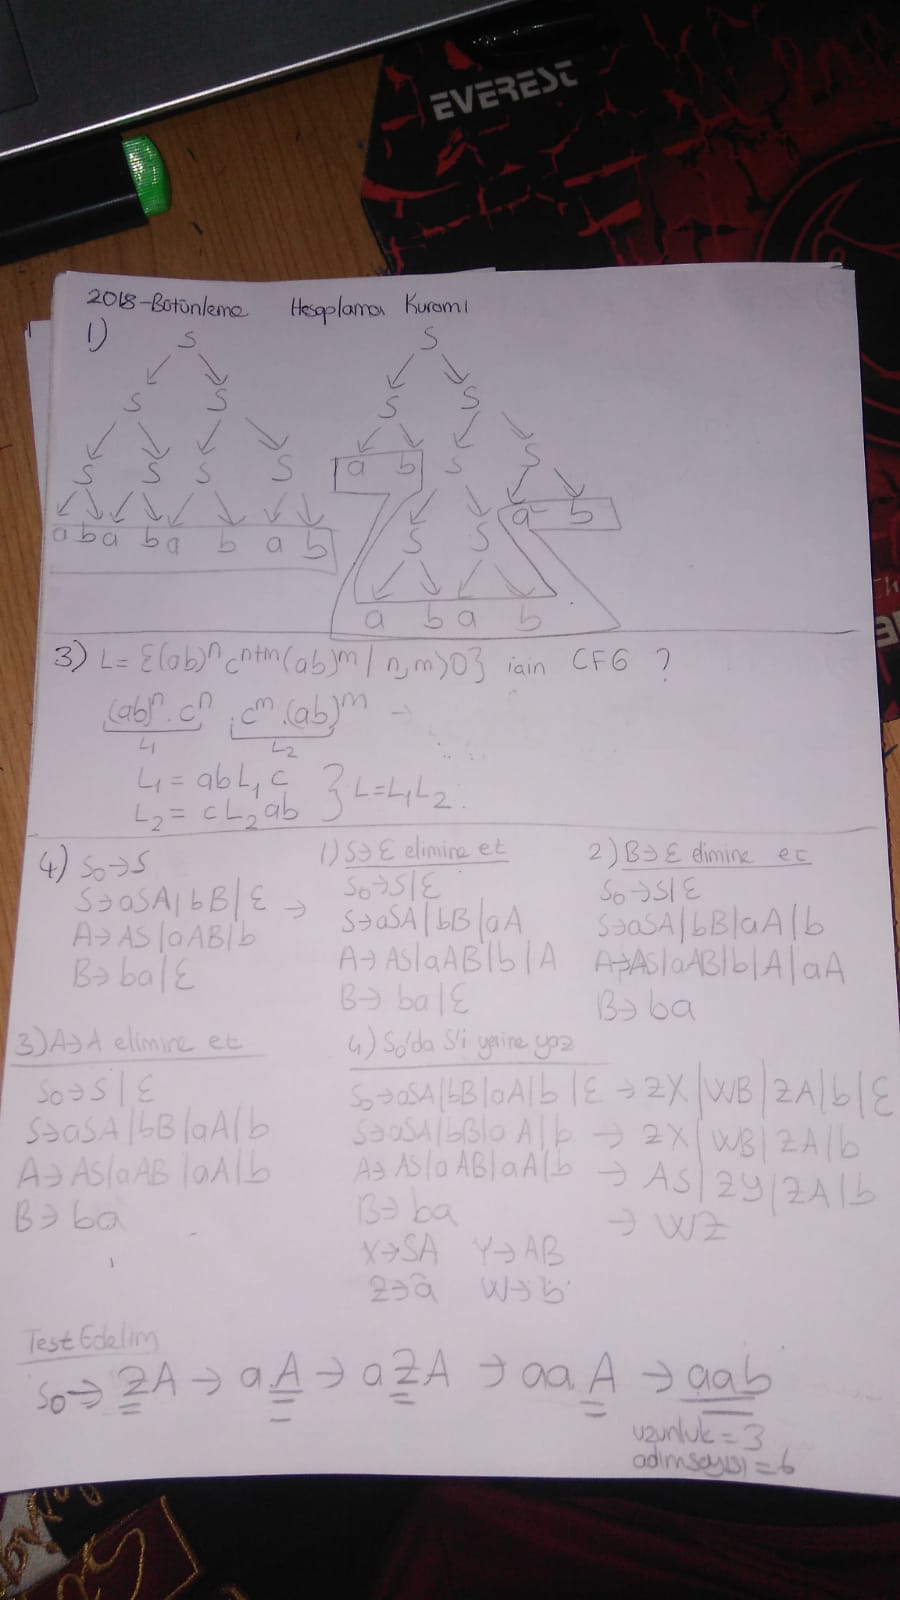 EVEREST
2018-Bütünleme Hesaplama Kuramı
1)
S S
S S S S
S S S S a b S S
a b a b a b a b S S a b
a b a b
3) L= {(ab)ⁿ cⁿ⁺ᵐ (ab)ᵐ / n,m>0} için CFG ?
(ab)ⁿ.cⁿ . cᵐ.(ab)ᵐ
L₁ L₂
L₁ = abL₁c
L₂ = cL₂ab } L=L₁L₂
4) S₀→S
S→aSA|bB|ε →
A→AS|aAB|b
B→ba|ε
1) S→ε elimine et
S₀→S|ε
S→aSA|bB|aA
A→AS|aAB|b|A
B→ba|ε
2) B→ε elimine et
S₀→S|ε
S→aSA|bB|aA|b
A→AS|aAB|b|A|aA
B→ba
3) A→A elimine et
S₀→S|ε
S→aSA|bB|aA|b
A→AS|aAB|aA|b
B→ba
4) S₀'da S'i yerine yaz
S₀→aSA|bB|aA|b|ε → ZX|WB|ZA|b|ε
S→aSA|bB|aA|b → ZX|WB|ZA|b
A→AS|aAB|aA|b → AS|ZY|ZA|b
B→ba → WZ
X→SA Y→AB
Z→a W→b
Test Edelim
S₀→ZA→aA→aZA→aaA→aab
uzunluk=3
adımsayısı=6